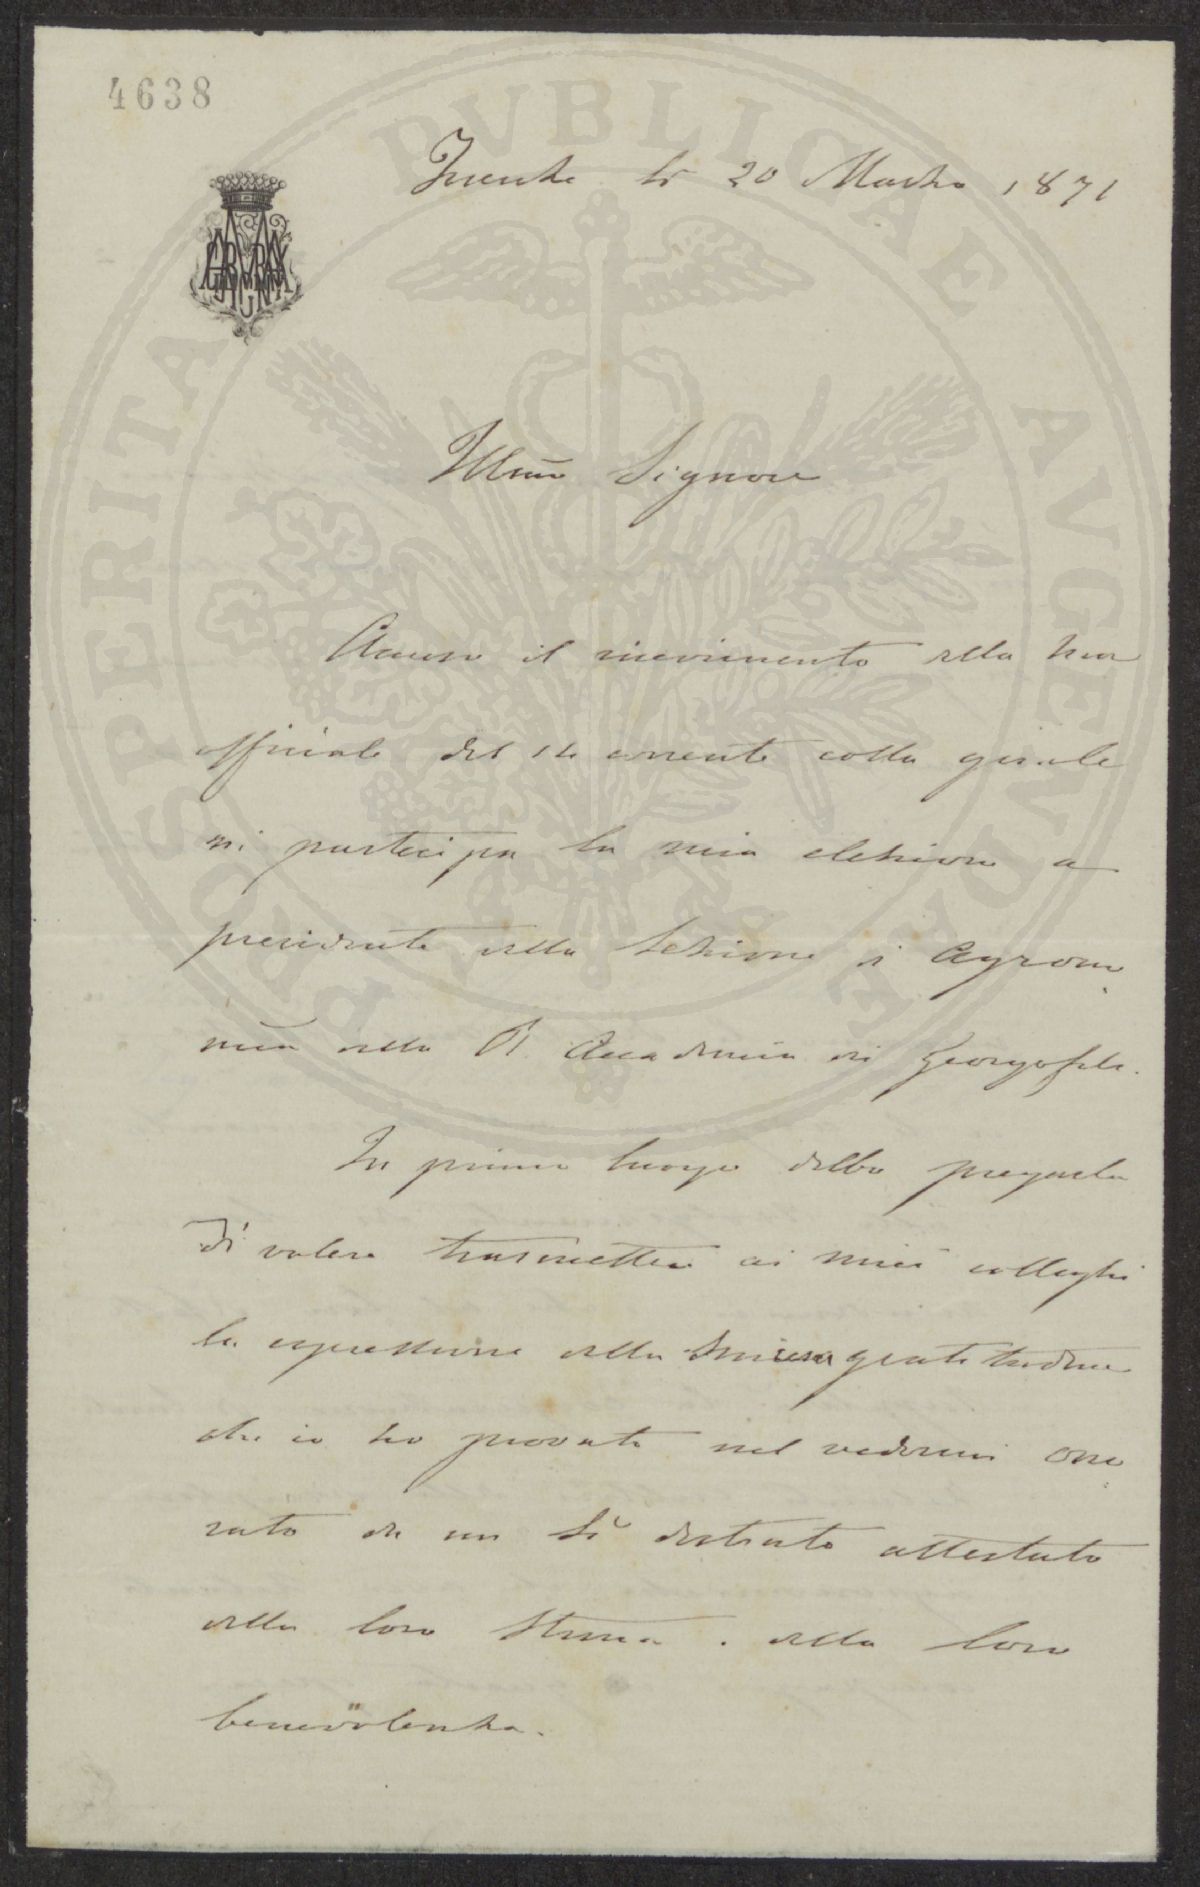 4638
Firenze li 20 Marzo 1871
Illmo Signore
Accuso il ricevimento della sua
officiale del 14 corrente colla quale
mi partecipa la mia elezione a
presidente della Sezione di Agrono
mia della R. Accademia dei Georgofili.
In primo luogo debbo pregarla
di volere trasmettere ai miei colleghi
la espressione della sincera gratitudine
che io ho provata nel vedermi ono
rato da un sì distinto attestato
della loro stima e della loro
benevolenza.
PROSPERITATI PVBLICAE AVGENDAE